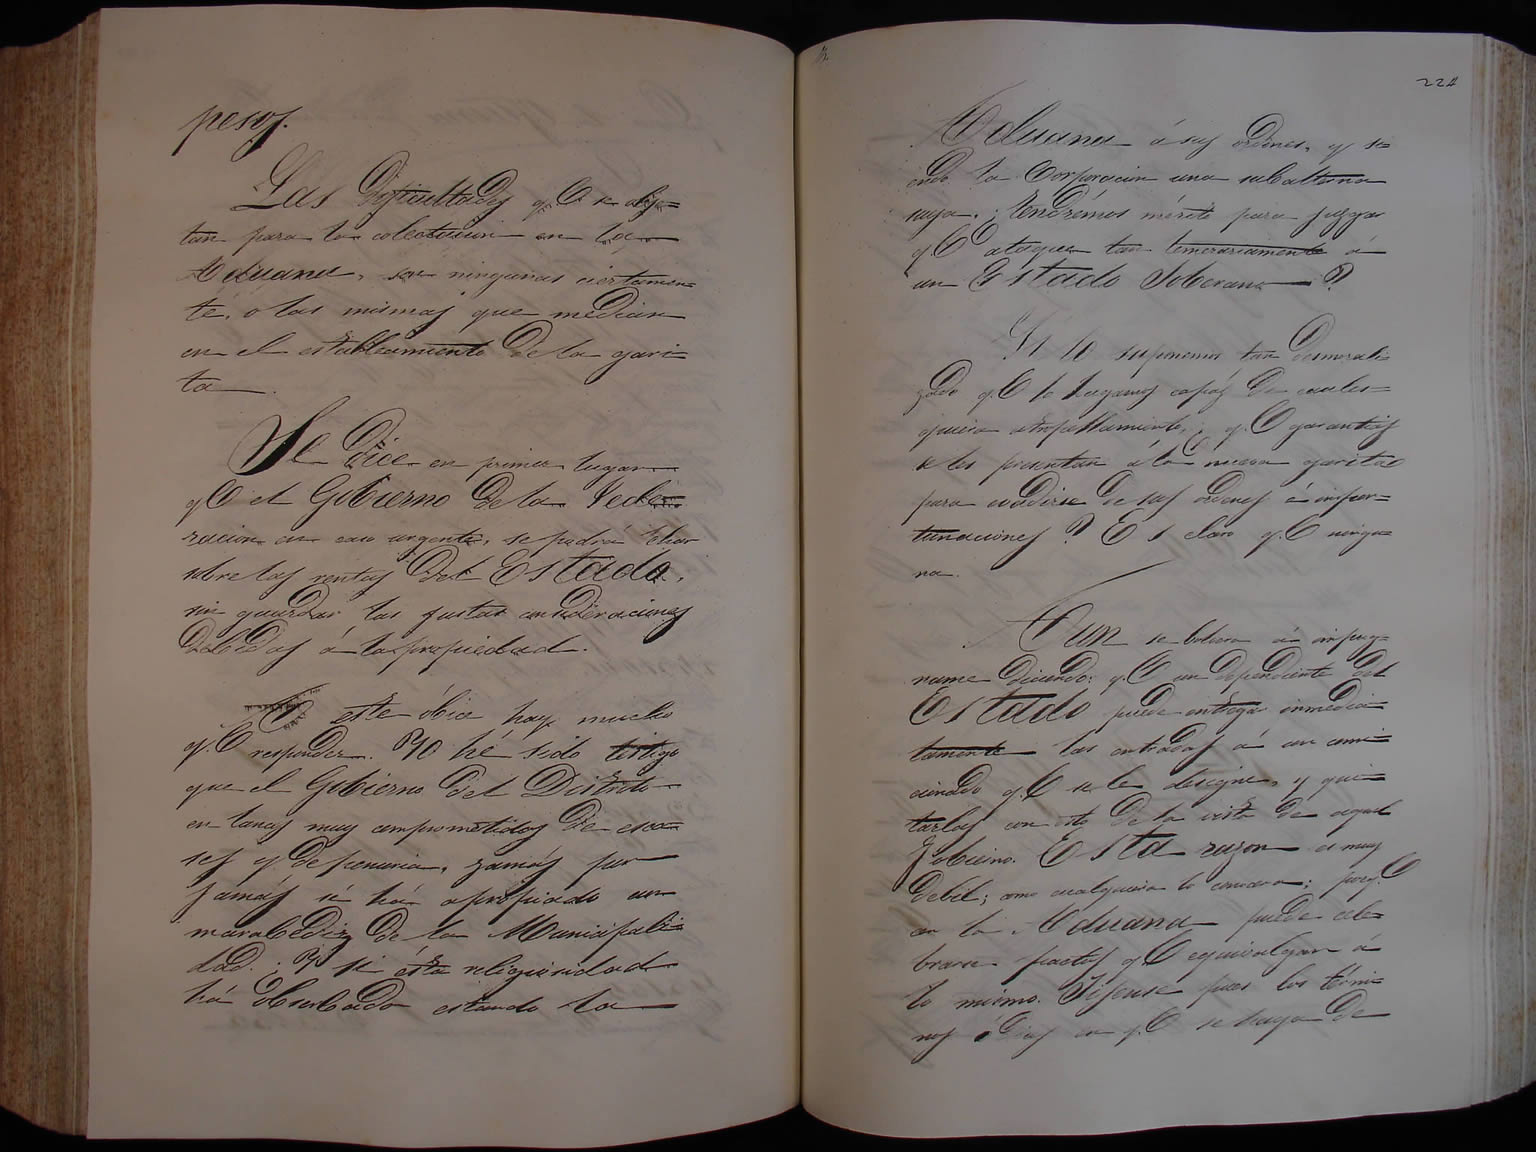 pesos.
Las Dificultades q.e se obje=
tan para la colectacion en la
Aduana, son ningunas ciertamen=
te, o las mismas que median
en el establecimiento De la gari=
ta.
Se Dice en primer lugar
q.e el Gobierno De la Fede=
racion en caso urgente, se podrá echar
sobre las rentas Del Estado,
sin guardar las justas consideraciones
Debidas á la propiedad.
A este óbice hay mucho
q.e responder. Yo hé sido testigo
que el Gobierno Del Distrito
en lances muy comprometidos De esca=
ses y De penuria, jamás por
jamás se há apropiado un
marabediz De la Municipali=
dad. ¿Y si ésta religiosidad
há obserbado estando la
224
Aduana á sus órdenes, y si=
endo la Corporacion una subalterna
suya; tendrémos mérito para juzgar
q.e ataque tan temerariamente á
un Estado Soberano?
Si lo suponemos tan Desmorali=
zado q.e lo hagamos capáz De cuales=
quiera atropellamiento, ¿q.e garantias
se les presentan á la nueva garita
para evadirse De sus ordenes é impor=
tunaciones? Es claro q.e ningu=
na.
Aun se bolverá á impug=
narme Diciendo: q.e un Dependiente Del
Estado puede entregar inmedia=
tamente las entradas á un comi=
cionado q.e se le designe, y qui=
tarlas con esto De la vista De aquel
Gobierno. Esta razon es muy
Debil; como cualquiera lo conocerá; porq.e
en la Aduana puede cele=
brarse pactos q.e equivalgan á
lo mismo. Fijense pues los térmi=
nos ó Dias en q.e se haya De